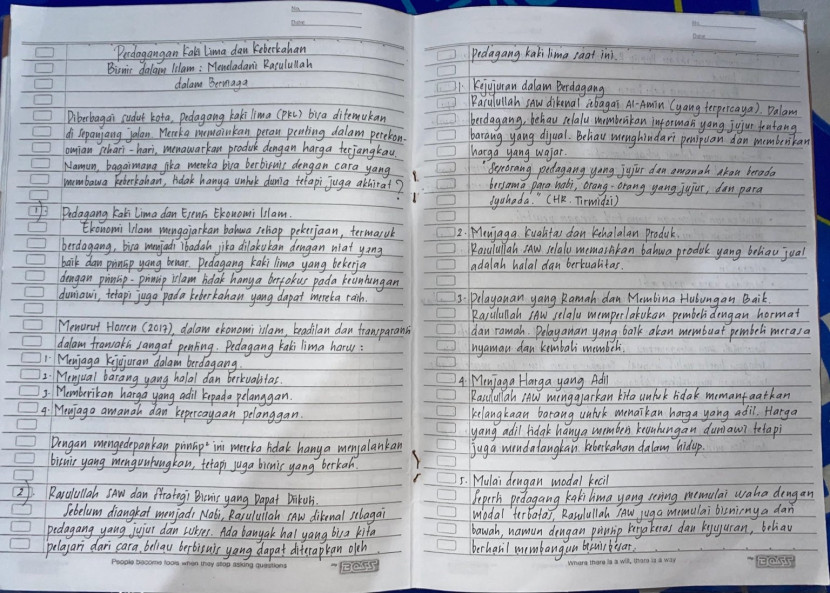 No.
Date.
Perdagangan Kaki Lima dan Keberkahan
Bisnis dalam Islam : Meneladani Rasulullah
dalam Berniaga
Diberbagai sudut kota, Pedagang kaki lima (PKL) bisa ditemukan
di sepanjang jalan. Mereka memainkan peran penting dalam perekon-
omian sehari-hari, menawarkan produk dengan harga terjangkau.
Namun, bagaimana jika mereka bisa berbisnis dengan cara yang
membawa keberkahan, tidak hanya untuk dunia tetapi juga akhirat?
1. Pedagang Kaki Lima dan Esensi Ekonomi Islam.
Ekonomi Islam mengajarkan bahwa setiap pekerjaan, termasuk
berdagang, bisa menjadi ibadah jika dilakukan dengan niat yang
baik dan prinsip yang benar. Pedagang kaki lima yang bekerja
dengan prinsip-prinsip islam tidak hanya berfokus pada keuntungan
duniawi, tetapi juga pada keberkahan yang dapat mereka raih.
Menurut Hossen (2017), dalam ekonomi islam, keadilan dan transparansi
dalam transaksi sangat penting. Pedagang kaki lima harus :
1. Menjaga Kejujuran dalam berdagang.
2. Menjual barang yang halal dan berkualitas.
3. Memberikan harga yang adil kepada pelanggan.
4. Menjaga amanah dan kepercayaan pelanggan.
Dengan mengedepankan prinsip² ini mereka tidak hanya menjalankan
bisnis yang menguntungkan, tetapi juga bisnis yang berkah.
2. Rasulullah SAW dan Strategi Bisnis yang Dapat Diikuti.
Sebelum diangkat menjadi Nabi, Rasulullah SAW dikenal sebagai
pedagang yang jujur dan sukses. Ada banyak hal yang bisa kita
pelajari dari cara beliau berbisnis yang dapat diterapkan oleh
People become fools when they stop asking questions
No.
Date
Pedagang kaki lima saat ini.
1. Kejujuran dalam Berdagang
Rasulullah SAW dikenal sebagai Al-Amin (yang terpercaya). Dalam
berdagang, beliau selalu memberikan informasi yang jujur tentang
barang yang dijual. Beliau menghindari penipuan dan memberikan
harga yang wajar.
"Seseorang pedagang yang jujur dan amanah akan berada
bersama para nabi, orang-orang yang jujur, dan para
syuhada." (HR. Tirmidzi)
2. Menjaga Kualitas dan Kehalalan Produk.
Rasulullah SAW selalu memastikan bahwa produk yang beliau jual
adalah halal dan berkualitas.
3. Pelayanan yang Ramah dan Membina Hubungan Baik.
Rasulullah SAW selalu memperlakukan pembeli dengan hormat
dan ramah. Pelayanan yang baik akan membuat pembeli merasa
nyaman dan kembali membeli.
4. Menjaga Harga yang Adil
Rasulullah SAW mengajarkan kita untuk tidak memanfaatkan
kelangkaan barang untuk menaikan harga yang adil. Harga
yang adil tidak hanya memberi keuntungan duniawi tetapi
juga mendatangkan keberkahan dalam hidup.
5. Mulai dengan modal kecil
Seperti pedagang kaki lima yang sering memulai usaha dengan
modal terbatas, Rasulullah SAW juga memulai bisnisnya dari
bawah, namun dengan prinsip kerja keras dan kejujuran, beliau
berhasil membangun bisnis besar.
Where there is a will, there is a way